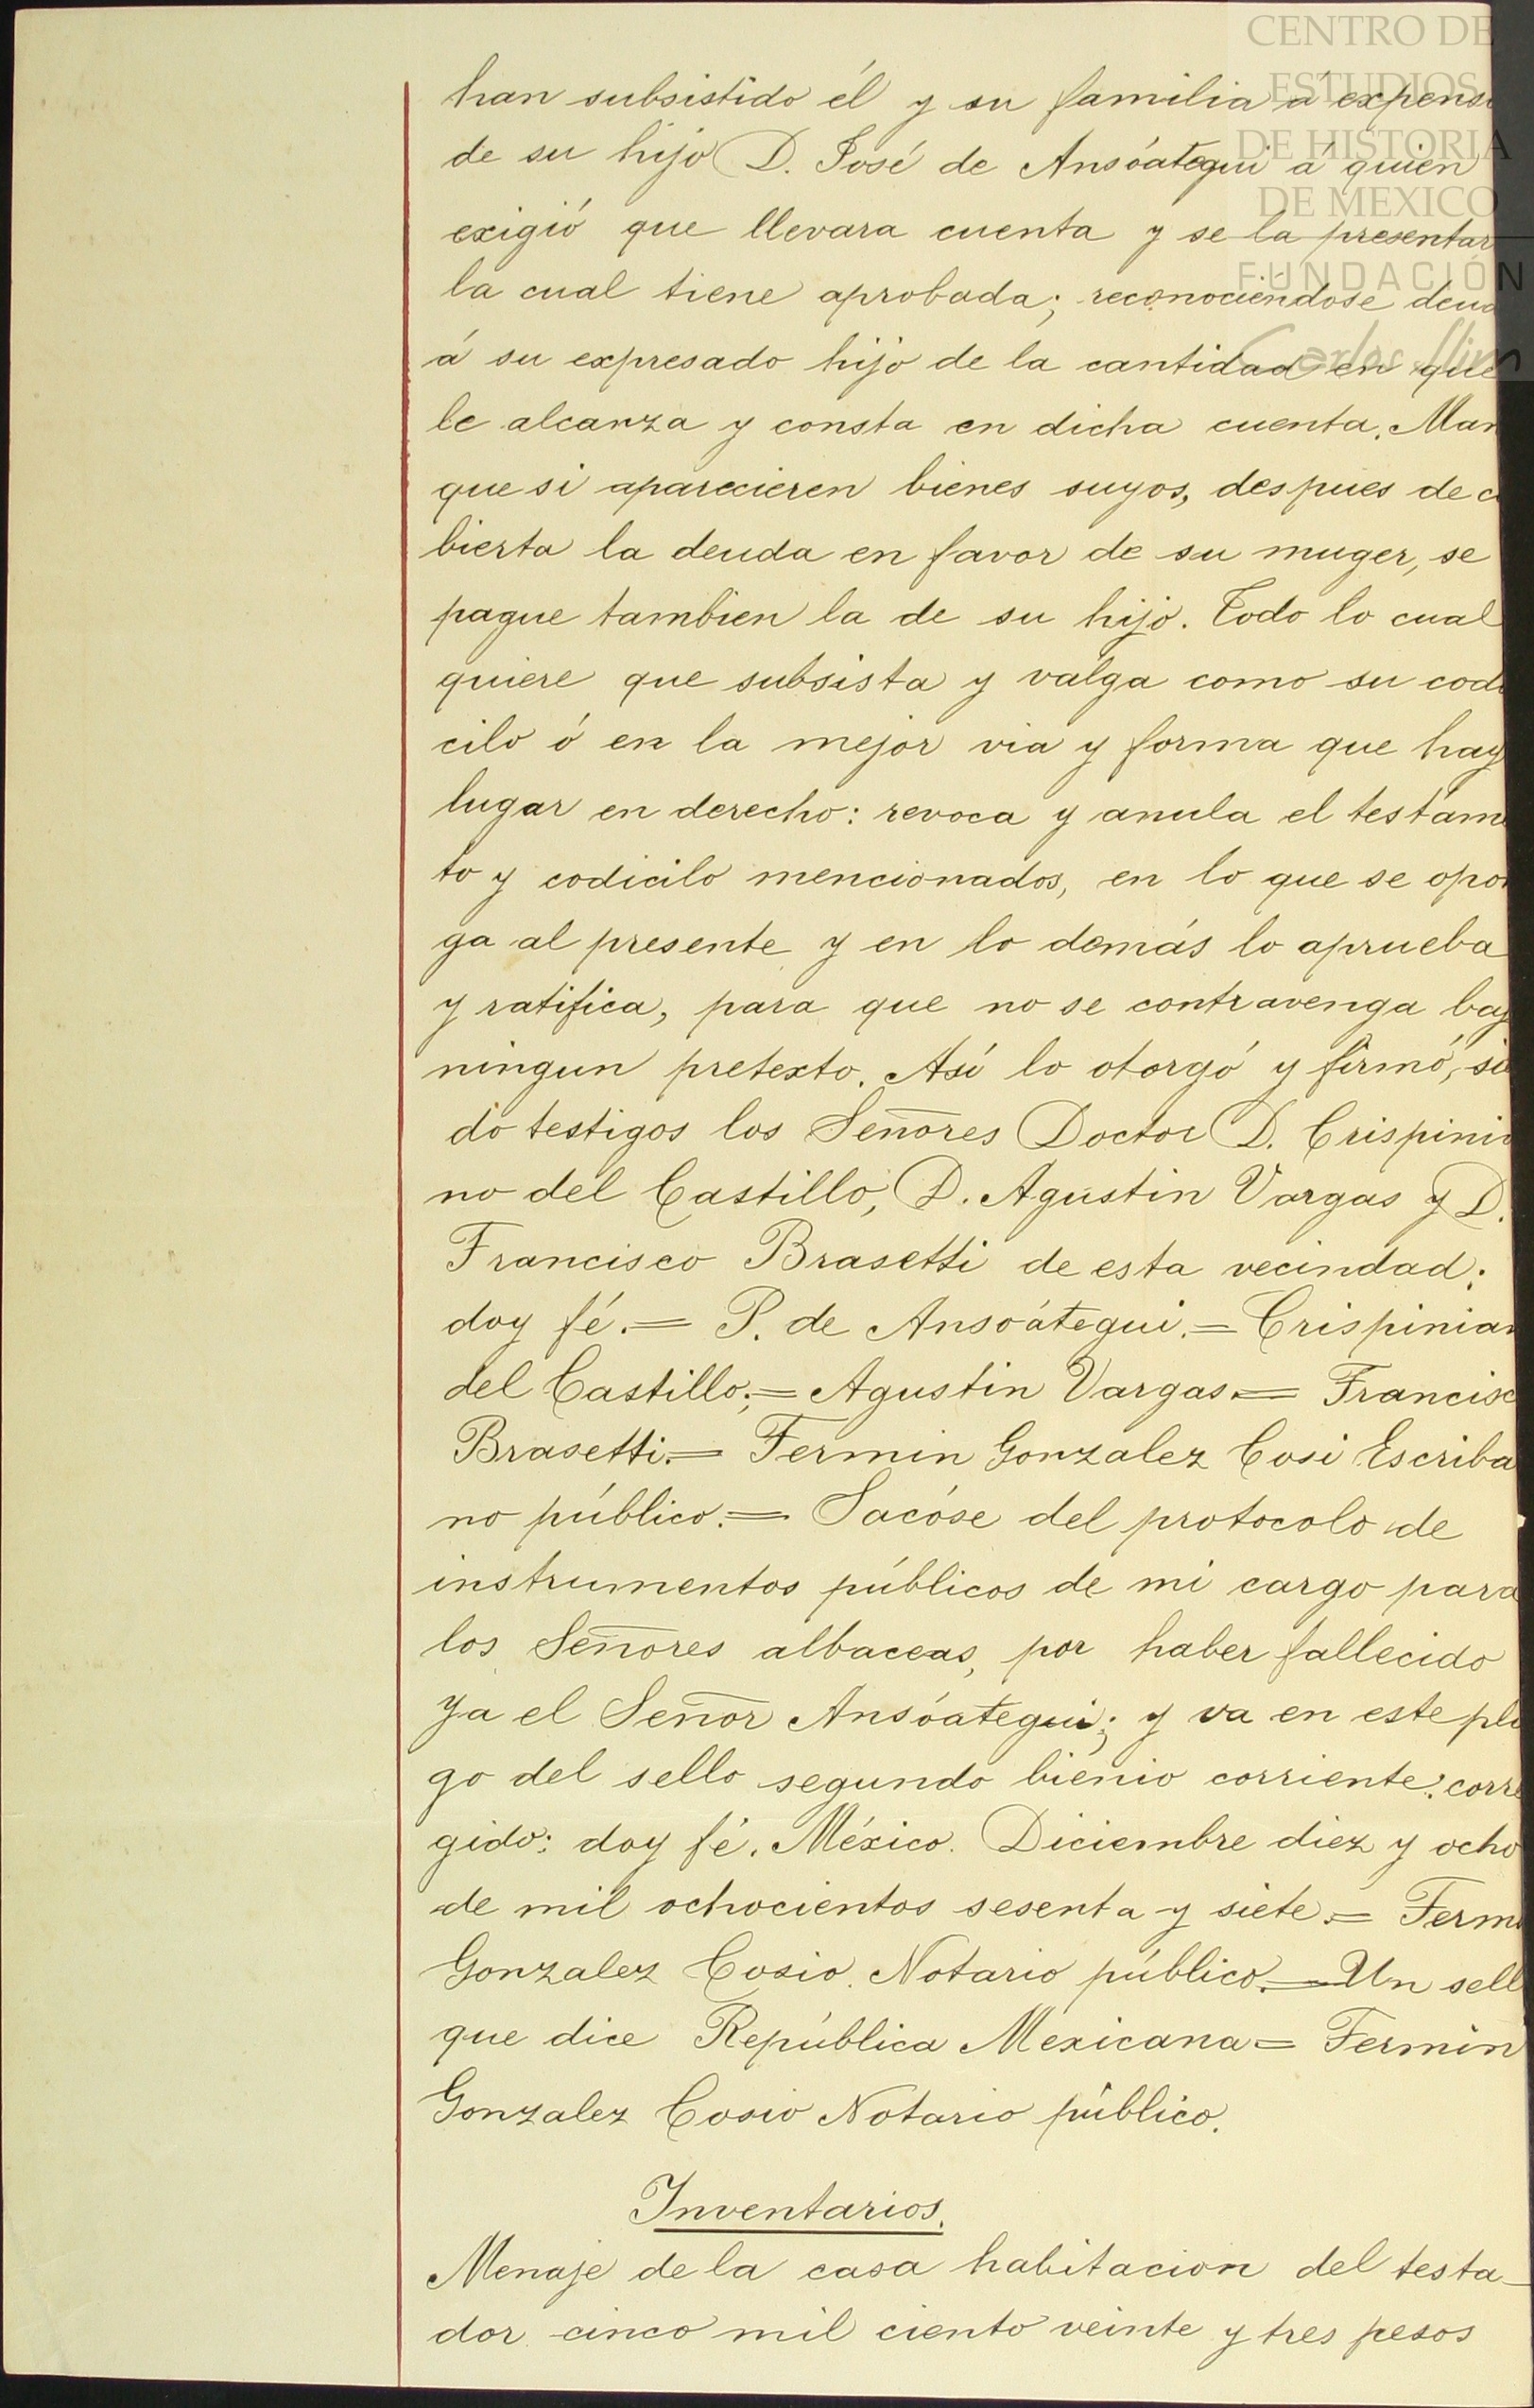 CENTRO DE
ESTUDIOS
DE HISTORIA
DE MEXICO
FUNDACIÓN
Carlos Slim
han subsistido él y su familia á expens
de su hijo D. José de Ansóategui á quien
exigió que llevara cuenta y se la presentar
la cual tiene aprobada; reconociéndose deud
á su expresado hijo de la cantidad en que
le alcanza y consta en dicha cuenta. Man
que si aparecieren bienes suyos, despues de c
bierta la deuda en favor de su muger, se
pague tambien la de su hijo. Todo lo cual
quiere que subsista y valga como su codi
cilo ó en la mejor via y forma que hay
lugar en derecho: revoca y anula el testame
to y codicilo mencionados, en lo que se opon
ga al presente y en lo demás lo aprueba
y ratifica, para que no se contravenga baj
ningun pretexto. Así lo otorgó y firmó, sie
do testigos los Señores Doctor D. Crispinia
no del Castillo, D. Agustin Vargas y D.
Francisco Brasetti de esta vecindad:
doy fé.= P. de Ansoátegui.= Crispinian
del Castillo;= Agustin Vargas.= Francisc
Brasetti.= Fermin Gonzalez Cosi Escriba
no público.= Sacóse del protocolo de
instrumentos públicos de mi cargo para
los Señores albaceas, por haber fallecido
ya el Señor Ansóategui; y va en este plie
go del sello segundo bienio corriente: corre
gido: doy fé. México. Diciembre diez y ocho
de mil ochocientos sesenta y siete.= Fermi
Gonzalez Cosio. Notario público.= Un sell
que dice República Mexicana= Fermin
Gonzalez Cosio Notario público.
Inventarios.
Menaje de la casa habitacion del testa-
dor cinco mil ciento veinte y tres pesos